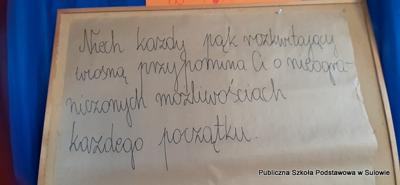 Niech każdy pąk rozkwitający
wiosną przypomina Ci o nieogra-
niczonych możliwościach
każdego początku.
Publiczna Szkoła Podstawowa w Sulowie